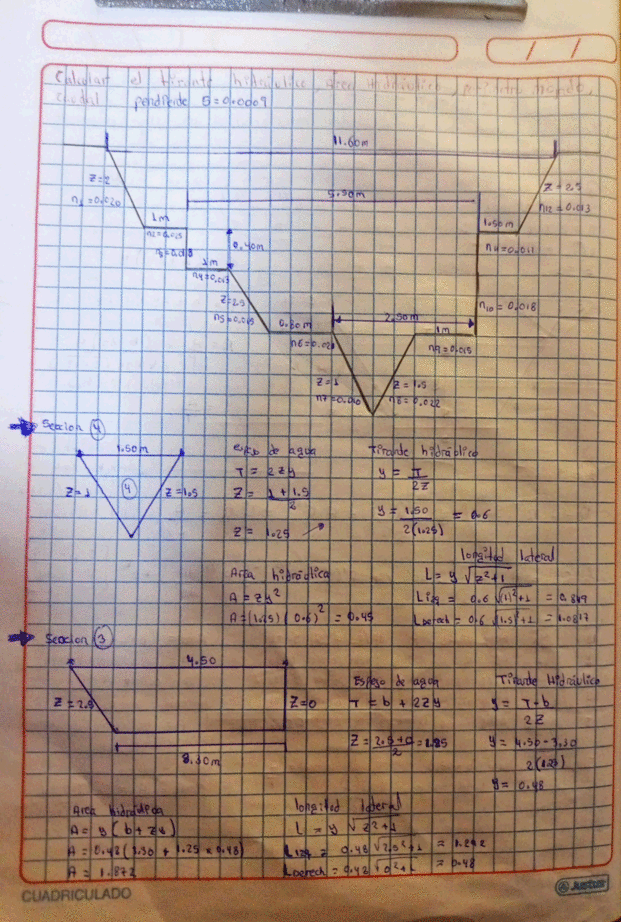 Calcular el tirante hidráulico, área hidráulica, perímetro mojado,
pendiente S=0.0009
11.60m
Z=2
n1=0.020
5.50m
Z=2.5
n12=0.013
1m
n2=0.025
1.50m
n11=0.011
0.40m
1m
n4=0.013
Z=2.5
n5=0.015
n10=0.018
0.80m
2.50m
1m
n9=0.015
Z=1
Z=1.5
n8=0.022
Seccion 4
1.50m
Z=1
4
Z=1.5
Espejo de agua
T = 2Zy
Z = 1+1.5
2
Z = 1.25
Tirante hidráulico
y = T
2Z
y = 1.50
2(1.25)
= 0.6
Area hidráulica
A = Zy²
A=(1.25)(0.6)² = 0.45
longitud lateral
L = y √Z²+1
Lizq = 0.6 √(1)²+1 = 0.849
Lderech = 0.6 √(1.5)²+1 = 1.0817
Seccion 3
4.50
Z=2.5
Z=0
3.30m
Espejo de agua
T = b + 2Zy
Z = 2.5+0
2
= 1.25
Tirante Hidráulico
y = T-b
2Z
y = 4.50-3.30
2(1.25)
y = 0.48
Area hidráulica
A = y(b+Zy)
A = 0.48(3.30 + 1.25 x 0.48)
A = 1.872
longitud lateral
L = y √Z²+1
Lizq = 0.48 √2.5²+1 = 1.292
Lderech = 0.48 √0²+1 = 0.48
CUADRICULADO
Justus